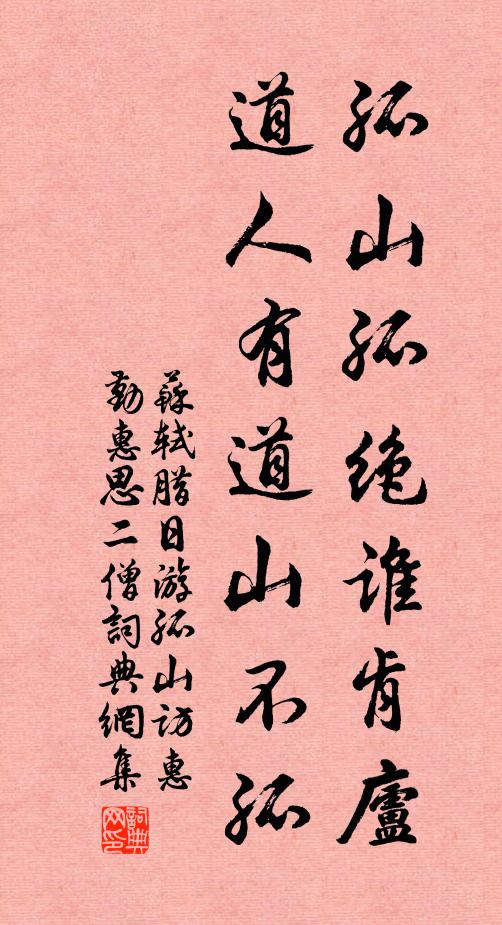 孤山孤絶誰肯廬
道人有道山不孤
蘇軾腊日游孤山訪惠
勤惠思二僧詞典網集
詞典网印